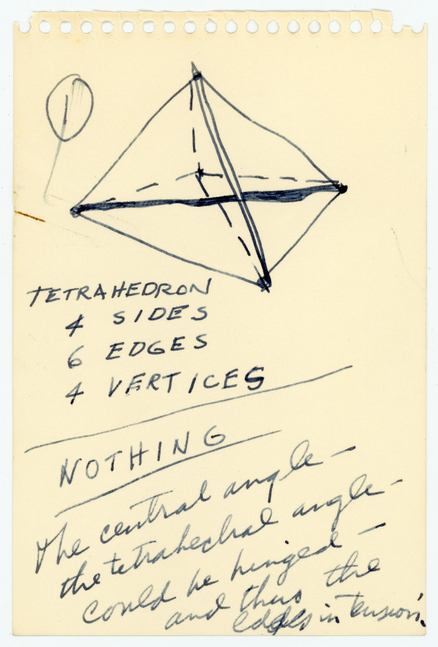 1
TETRAHEDRON
4 SIDES
6 EDGES
4 VERTICES
NOTHING
The central angle –
the tetrahedral angle –
could be hinged –
and thus the
edges in tension.